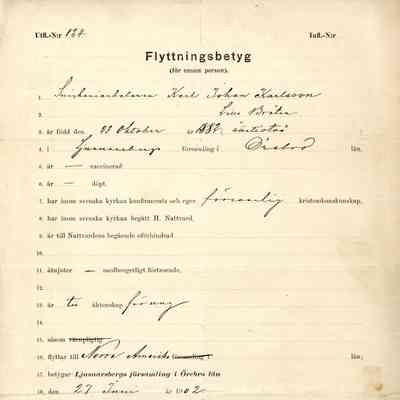 Utfl.-N:r 124. Infl.-N:r
Flyttningsbetyg
(för ensam person).
1. Snickeriarbetaren Karl Johan Karlsson
2.
3. är född den 23 Oktober år 1882
4. i församling i Örebro län,
5. är — vaccinerad
6. är — döpt,
7. har inom svenska kyrkan konfirmerats och eger försvarlig kristendomskunskap,
8. har inom svenska kyrkan begått H. Nattvard,
9. är till Nattvardens begående oförhindrad
10.
11. åtnjuter — medborgerligt förtroende,
12.
13. är till äktenskap för ung
14.
15. såsom
16. flyttar till Norra Amerika församling i län;
17. betygar Ljusnarsbergs församling i Örebro län
18. den 27 Juni år 1902